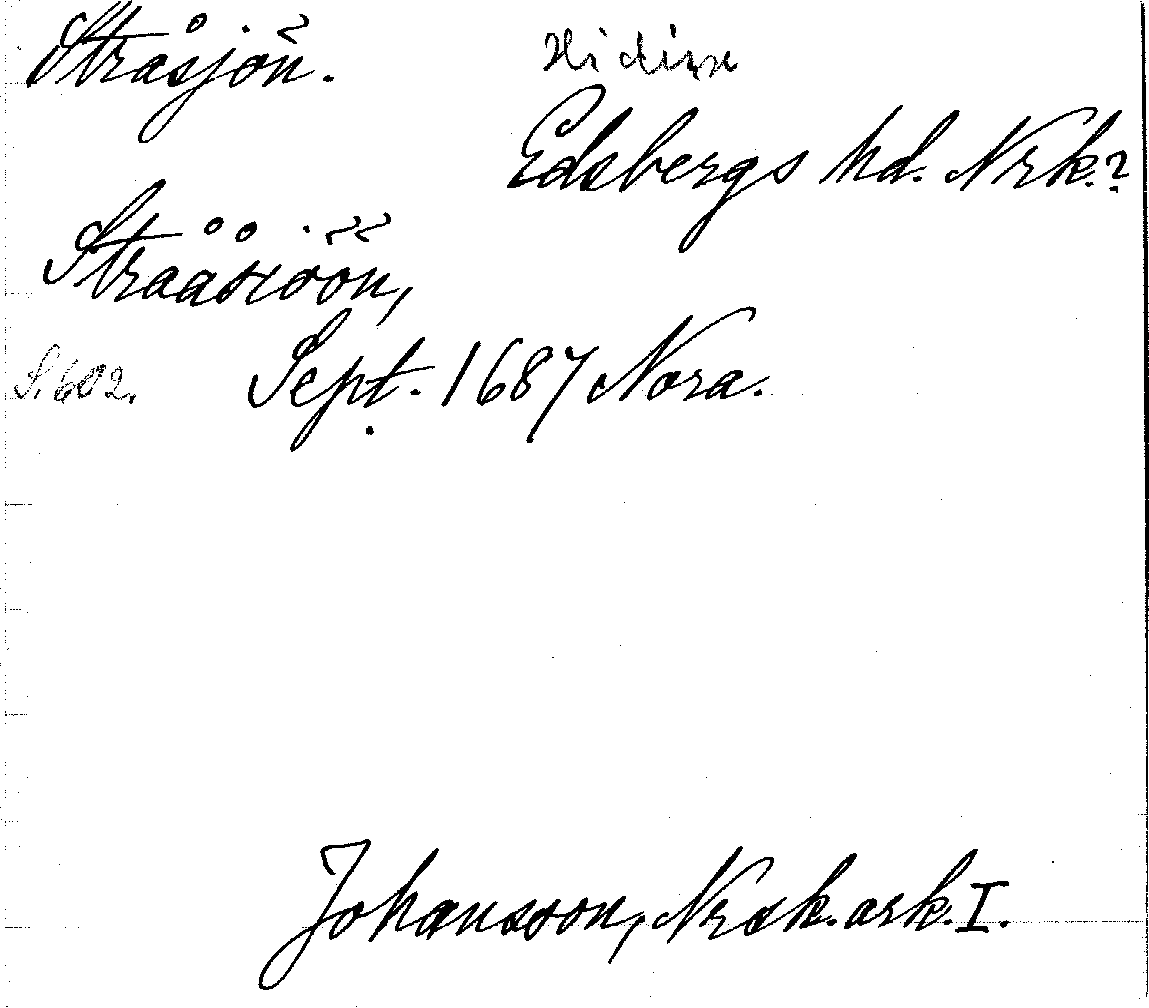 Stråsjön.
Edsbergs hd. Nrk.?
Strååsiöön,
S. 602. Sept. 1687 Nora.
Johansson, Nrsk. ark. I.